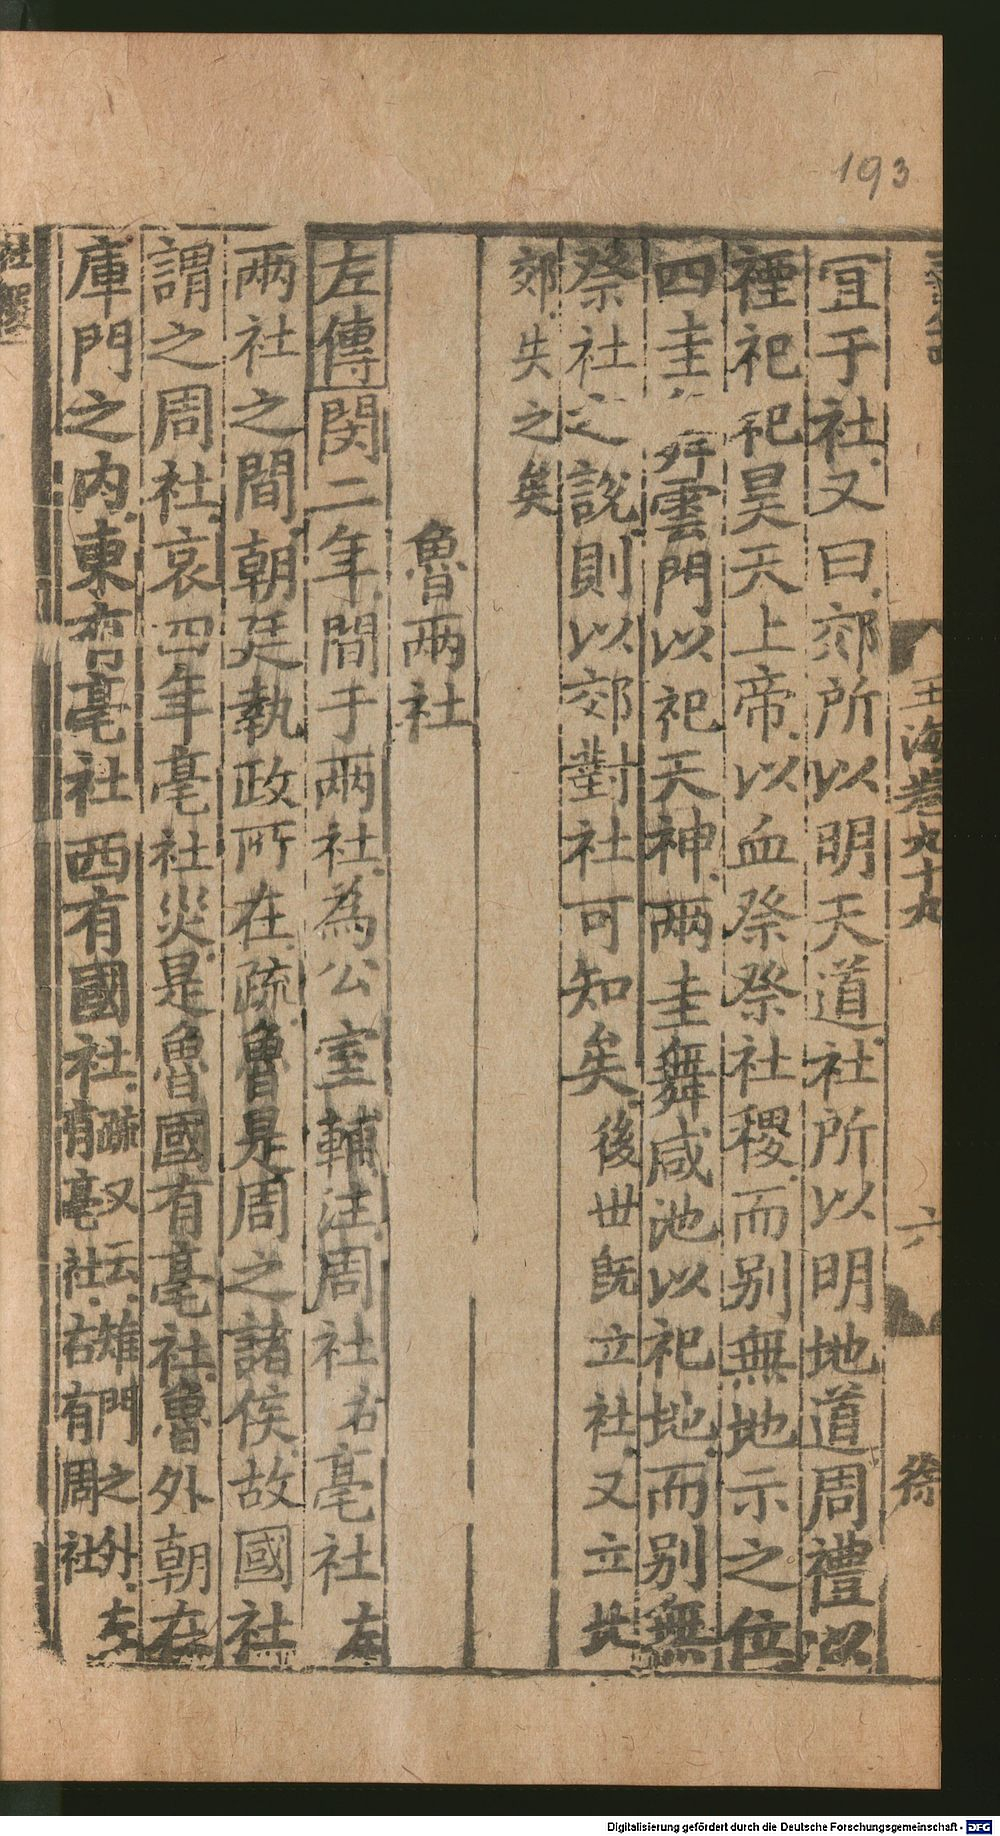 193
玉海卷九十九
六
徐
宜于社又曰郊所以明天道社所以明地道周禮以
禋祀祀昊天上帝以血祭祭社稷而别無地示之位
四圭舞雲門以祀天神兩圭舞咸池以祀地而别無
祭社之說則以郊對社可知矣後世既立社又立北
郊失之矣
魯兩社
左傳閔二年間于兩社為公室輔注周社右亳社左
兩社之間朝廷執政所在疏魯是周之諸侯故國社
謂之周社哀四年亳社災是魯國有亳社魯外朝在
庫門之内東有亳社西有國社疏又云雉門之外左
有亳社右有周社
Digitalisierung gefördert durch die Deutsche Forschungsgemeinschaft - DFG